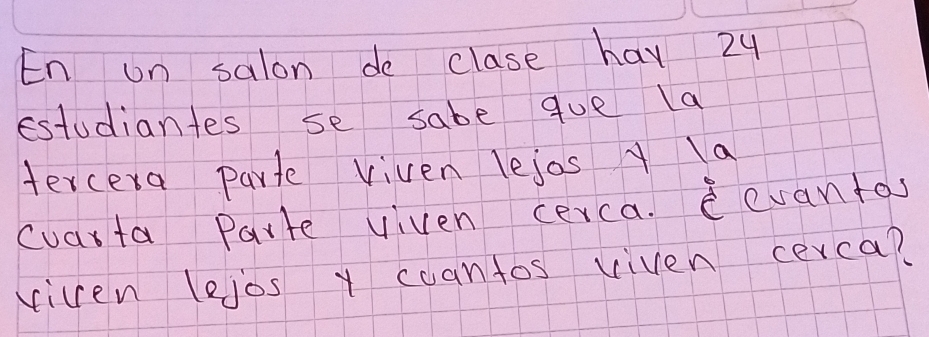 En un salon de clase hay 24
estudiantes se sabe que la
tercera parte viven lejos y la
cuarta Parte viven cerca. ¿ cuantos
viven lejos y cuantos viven cerca?